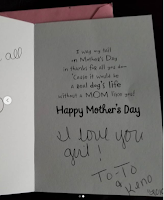 all
I wag my tail
on Mother's Day
in thanks for all you do...
'Cause it would be
a real dog's life
without a MOM like you!
Happy Mother's Day
I love you
girl!
To-To
&